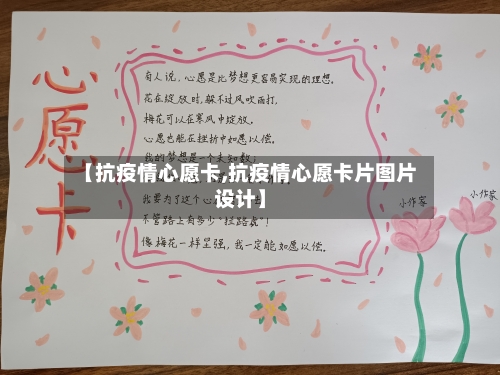 心愿卡
有人说,心愿是比梦想更容易实现的理想。
花在绽放时,躲不过风吹雨打,
梅花可以在寒风中绽放,
心愿也能在挫折中如愿以偿。
我的梦想是一个未知数;
【抗疫情心愿卡,抗疫情心愿卡片图片
设计】
我要为了这个心愿
不管路上有多少“拦路虎”!
像梅花一样坚强,我一定能如愿以偿。
小作家
小作家